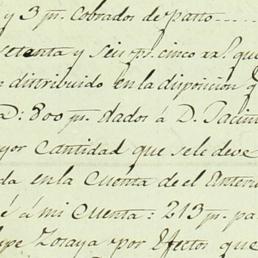 y 3 ps. cobrados de patto
setenta y seis ps. cinco rrs. que
distribuido en la disposicion q
D: 800 ps. dados á D. Jacin
yor Cantidad que se le deve
da en la Cuenta de el Anteri
é á mi Cuenta: 213 ps. pa
lipe Zoraya por Efectos que